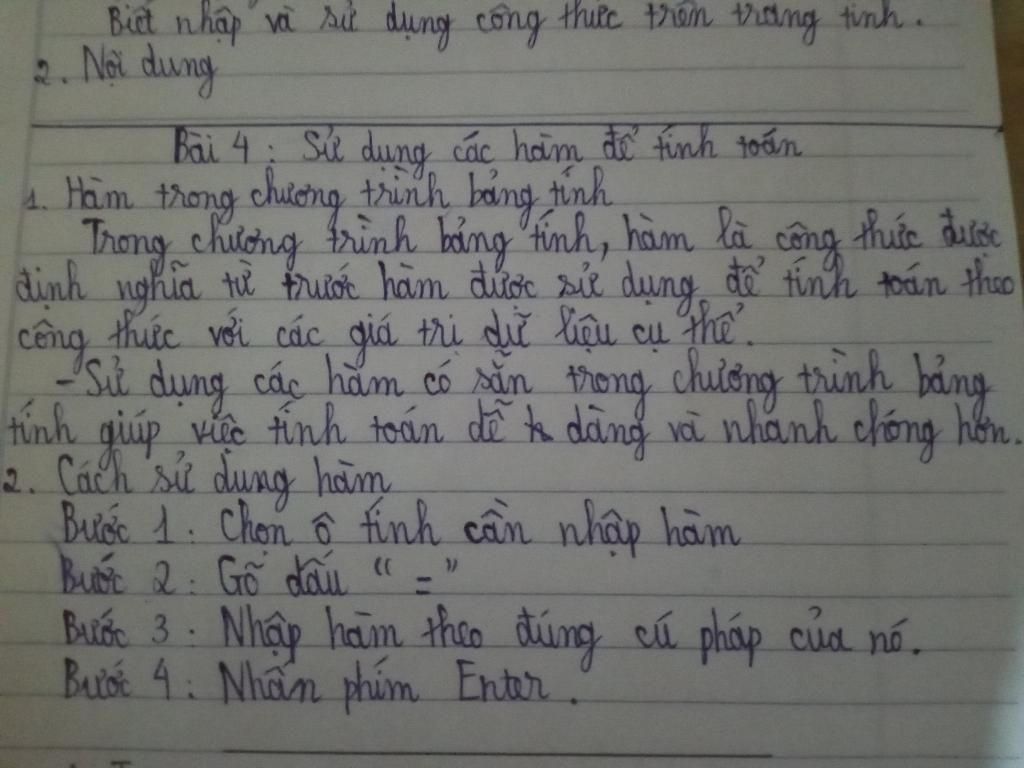 Biết nhập và sử dụng công thức trên trang tính.
2. Nội dung
Bài 4 : Sử dụng các hàm để tính toán
1. Hàm trong chương trình bảng tính
Trong chương trình bảng tính, hàm là công thức được
định nghĩa từ trước hàm được sử dụng để tính toán theo
công thức với các giá trị dữ liệu cụ thể.
- Sử dụng các hàm có sẵn trong chương trình bảng
tính giúp việc tính toán dễ dàng và nhanh chóng hơn.
2. Cách sử dụng hàm
Bước 1 : Chọn ô tính cần nhập hàm
Bước 2 : Gõ dấu " = "
Bước 3 : Nhập hàm theo đúng cú pháp của nó.
Bước 4 : Nhấn phím Enter.